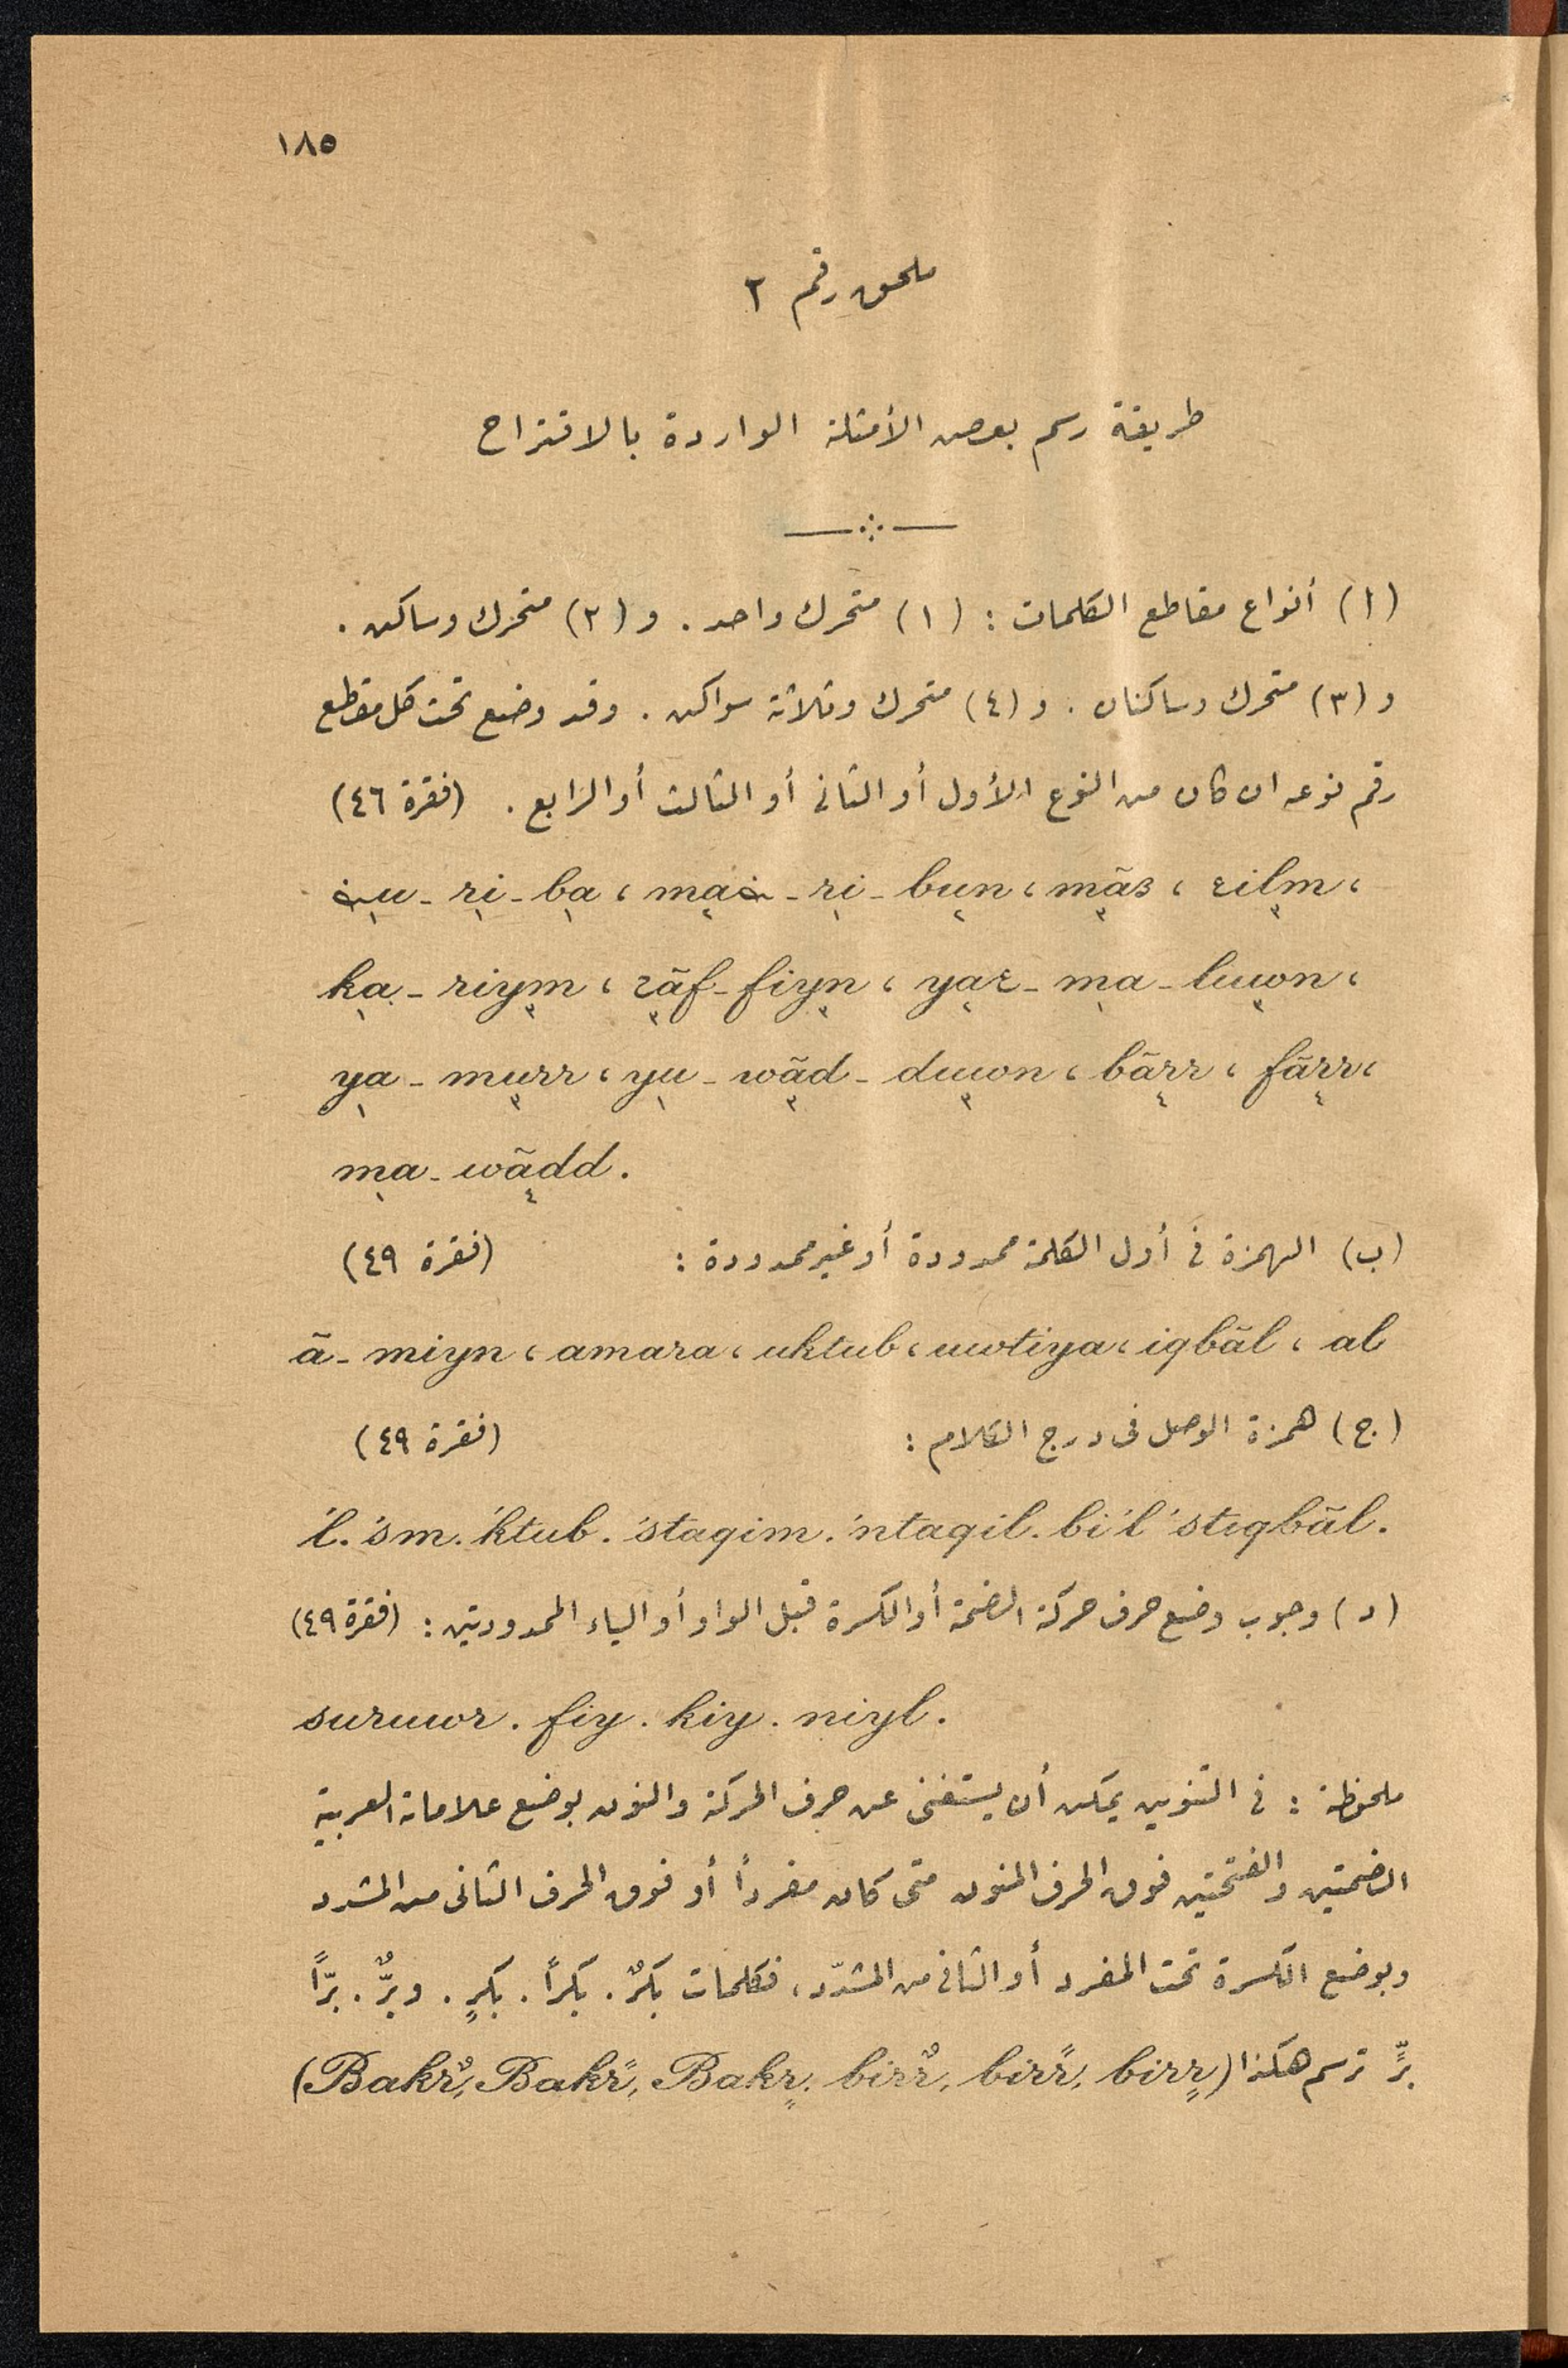 ١٨٥
ملحق رقم ٢
طريقة رسم بعض الأمثلة الواردة بالاقتراح
(ا) أنواع مقاطع الكلمات : (١) متحرك واحد . و (٢) متحرك وساكن .
و (٣) متحرك وساكنان . و (٤) متحرك وثلاثة سواكن . وقد وضع تحت كل مقطع
رقم نوعه ان كان من النوع الأول أو الثانى أو الثالث أو الرابع . (فقرة ٤٦)
ضu - ri - ba ، maض - ri - bun ، mãs ، εilm ،
ka - riym ، ƨãf - fiyn ، yaε - ma - luwn ،
ya - murr ، yu - wãd - duwn ، bãrr ، fãrr ،
ma - wãdd .
(ب) الهمزة فى أول الكلمة ممدودة أو غير ممدودة : (فقرة ٤٩)
ã - miyn ، amara ، uktub ، uwtiya ، iqbãl ، al
(ج) همزة الوصل فى درج الكلام : (فقرة ٤٩)
'l . 'sm . 'ktub . 'staqim . 'ntaqil . bi 'l 'stiqbãl .
(د) وجوب وضع حرف حركة الضمة أو الكسرة قبل الواو أو الياء الممدودتين : (فقرة ٤٩)
suruwr . fiy . kiy . niyl .
ملحوظة : فى التنوين يمكن أن يستغنى عن حرف الحركة والنون بوضع علامات العربية
الضمتين والفتحتين فوق الحرف المنون متى كان مفرداً أو فوق الحرف الثانى من المشدد
وبوضع الكسرة تحت المفرد أو الثانى من المشدّد ، فكلمات بكرٌ . بكراً . بكرٍ . وبرٌّ . برّاً
برٍّ ترسم هكذا (Bakrٌ, Bakrً, Bakrٍ. birrٌ, birrً, birrٍ)